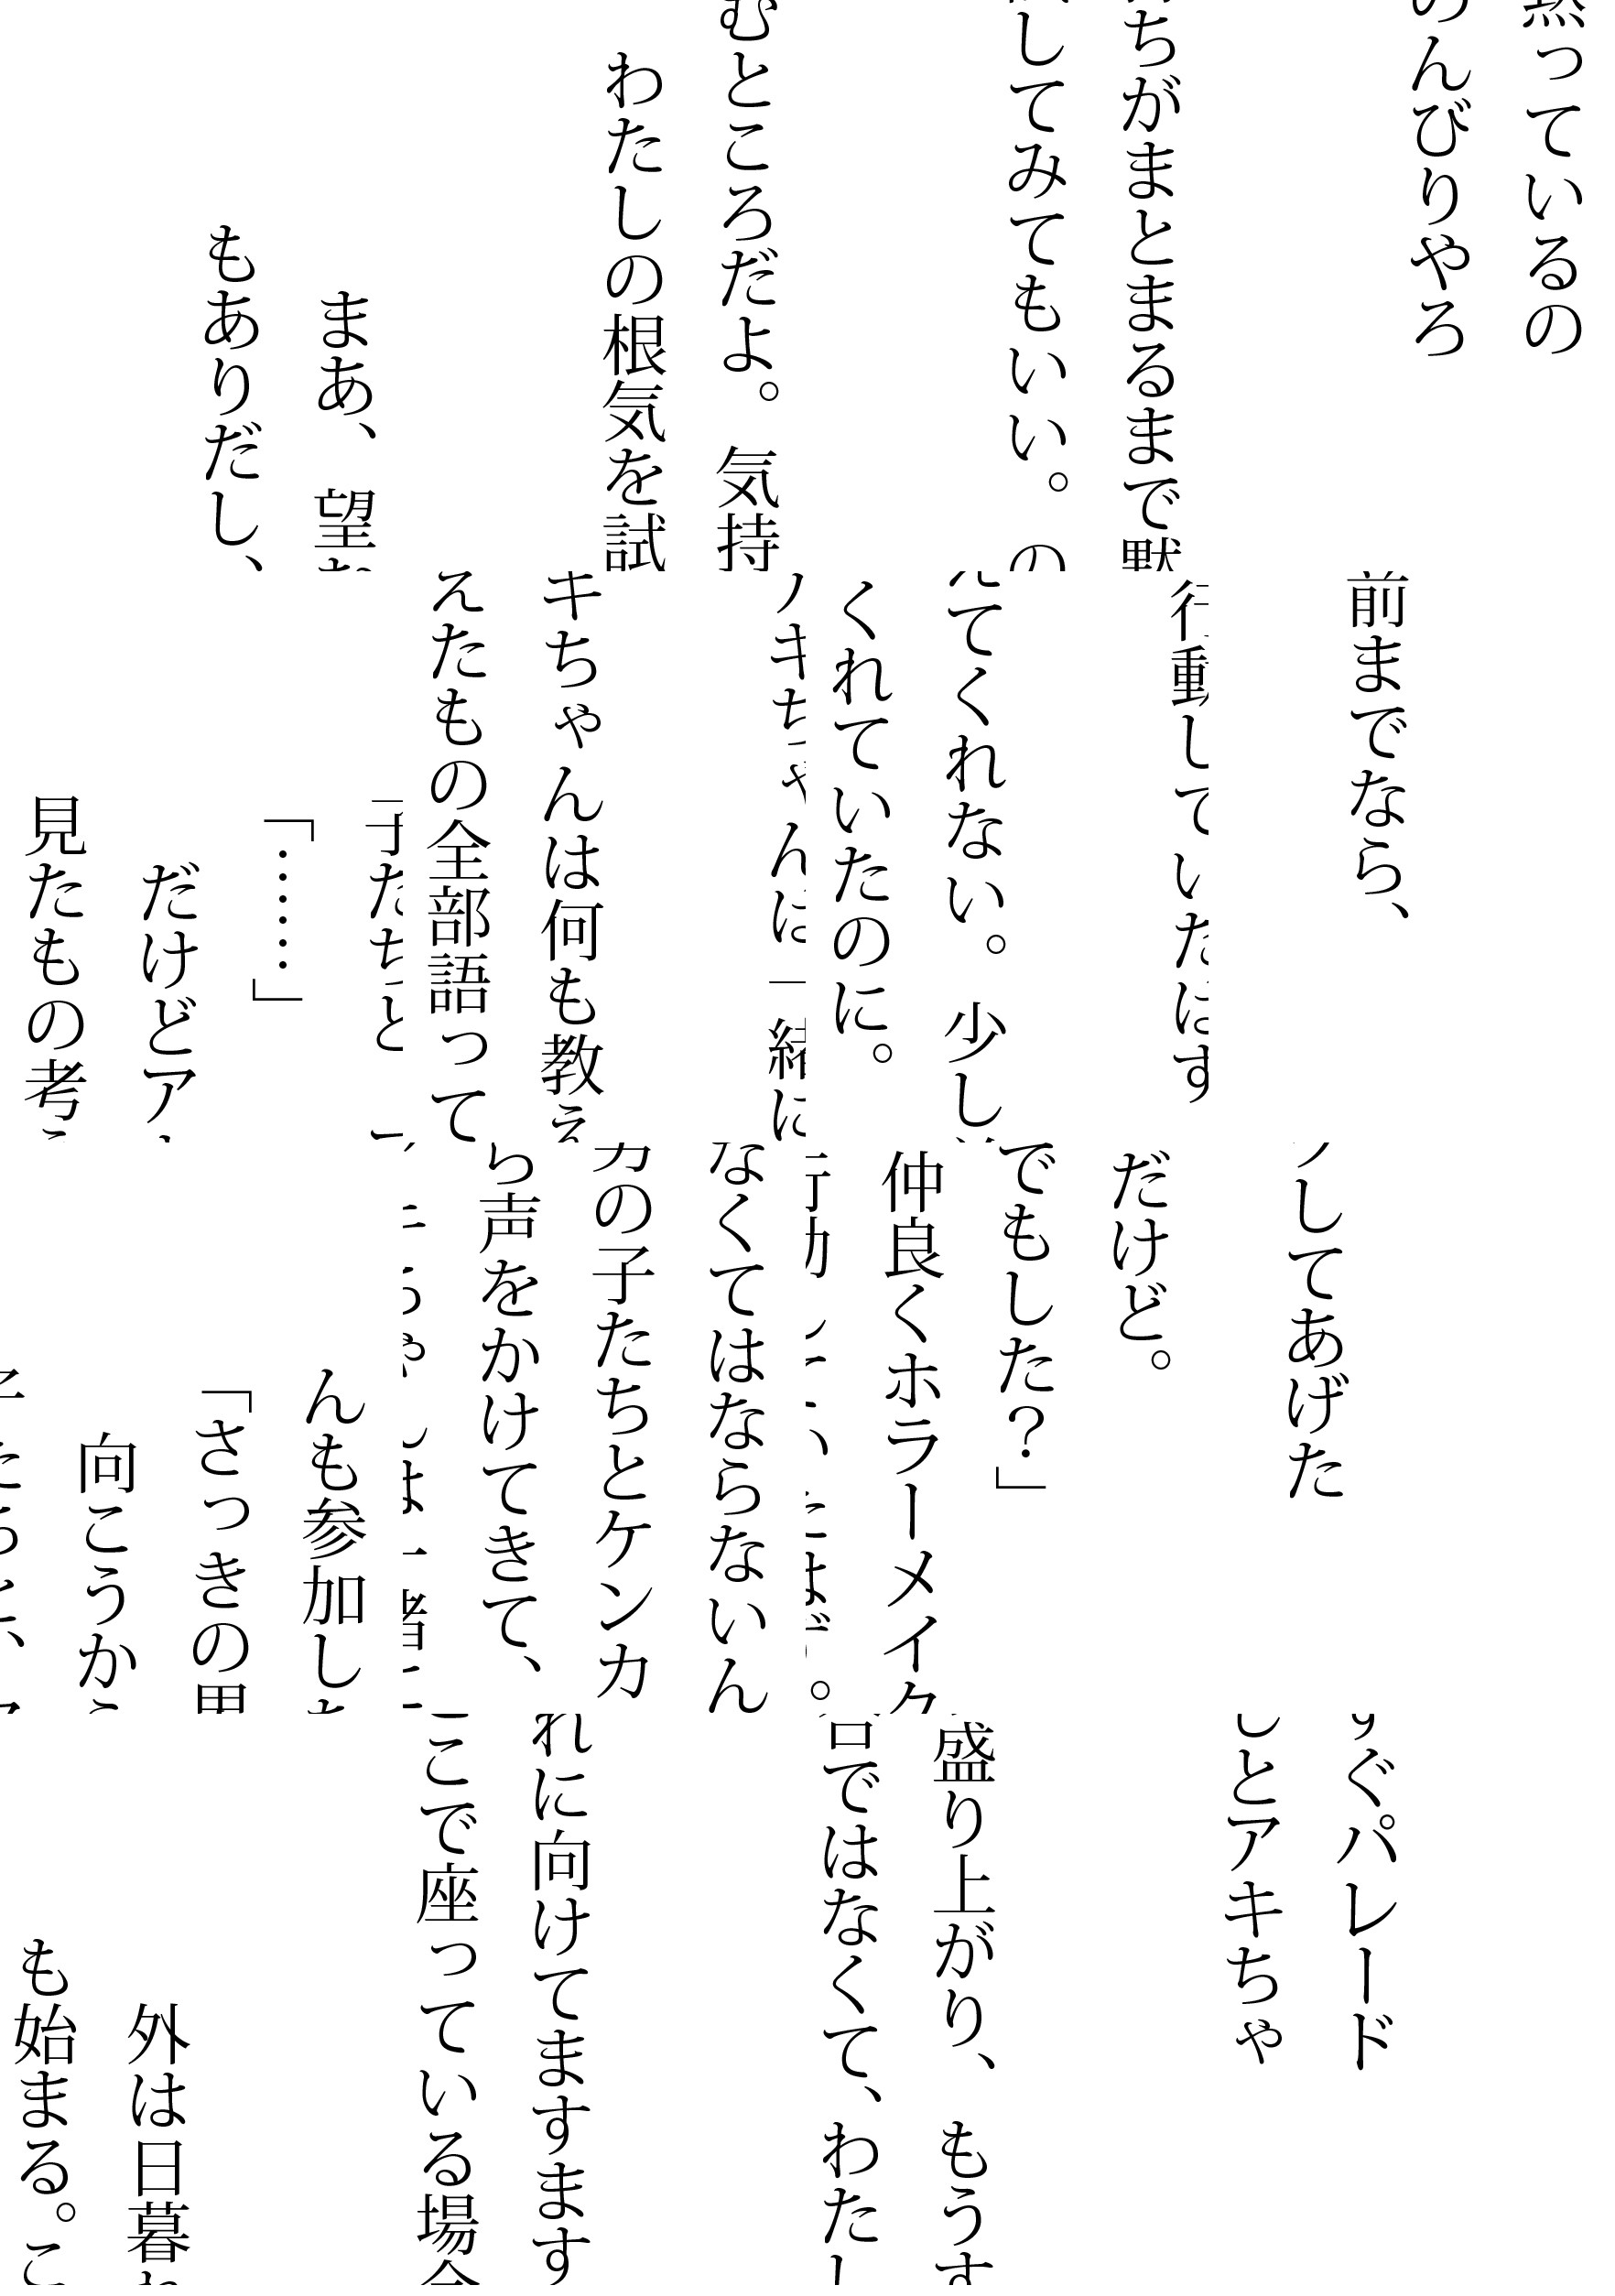 っているの
んびりやろ
ちがまとまるまで黙
してみてもいい。の
むところだよ。気持
わたしの根気を試
まあ、望
もありだし、
前までなら、
行動していたはず
てくれない。少し
くれていたのに。
キちゃんは一緒に
キちゃんは何も教え
えたもの全部語って
子たちと
「……」
だけどア
見たもの考
してあげた
だけど。
でもした？」
仲良くホラーメイク
なくてはならないん
の子たちとケンカ
ら声をかけてきて、
んも参加し
「さっきの
向こうか
ぐパレード
しとアキちゃ
盛り上がり、もうす
ではなくて、わたし
れに向けてますます
こで座っている場合
外は日暮
も始まる。こ